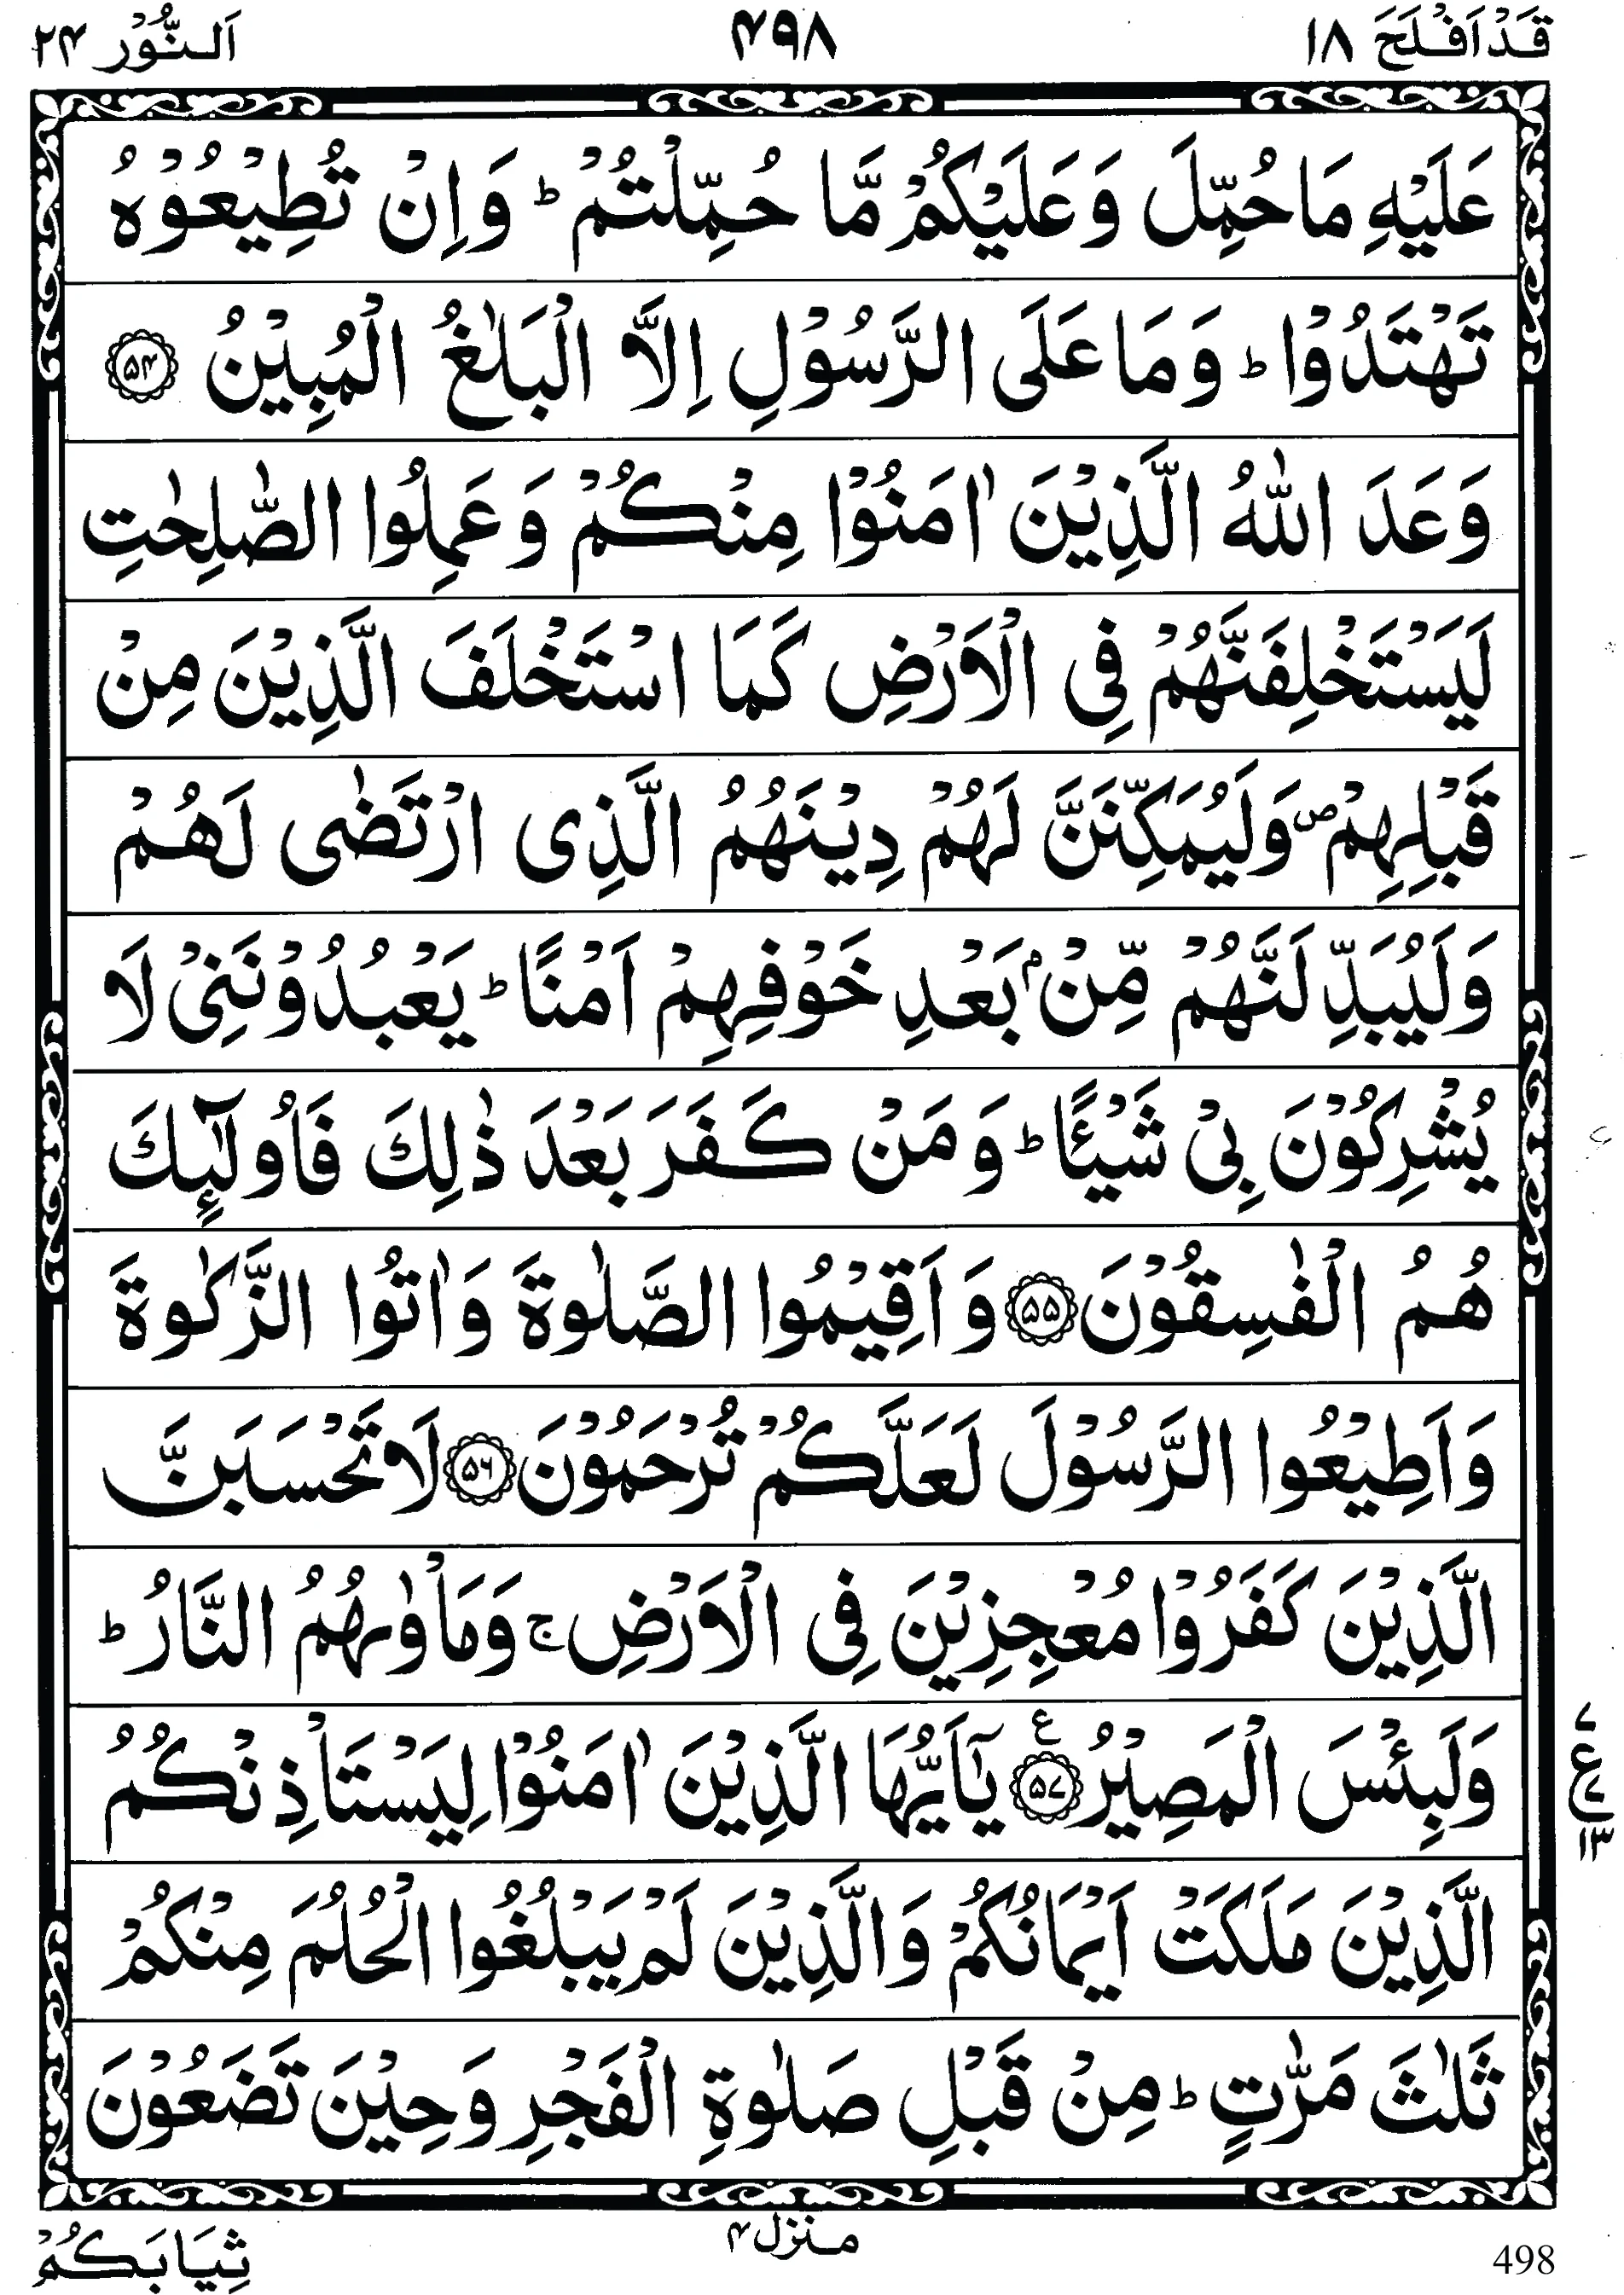 قَدْ اَفْلَحَ ۱۸ ۴۹۸ اَلنُّوْر ۲۴
عَلَيْهِ مَا حُمِّلَ وَعَلَيْكُمْ مَّا حُمِّلْتُمْ ؕ وَاِنْ تُطِيْعُوْهُ
تَهْتَدُوْا ؕ وَمَا عَلَى الرَّسُوْلِ اِلَّا الْبَلٰغُ الْمُبِيْنُ ۵۴
وَعَدَ اللّٰهُ الَّذِيْنَ اٰمَنُوْا مِنْكُمْ وَعَمِلُوا الصّٰلِحٰتِ
لَيَسْتَخْلِفَنَّهُمْ فِى الْاَرْضِ كَمَا اسْتَخْلَفَ الَّذِيْنَ مِنْ
قَبْلِهِمْ ص وَلَيُمَكِّنَنَّ لَهُمْ دِيْنَهُمُ الَّذِى ارْتَضٰى لَهُمْ
وَلَيُبَدِّلَنَّهُمْ مِّنْۢ بَعْدِ خَوْفِهِمْ اَمْنًا ؕ يَعْبُدُوْنَنِىْ لَا
يُشْرِكُوْنَ بِىْ شَيْـًٔا ؕ وَمَنْ كَفَرَ بَعْدَ ذٰلِكَ فَاُولٰٓئِكَ
هُمُ الْفٰسِقُوْنَ ۵۵ وَاَقِيْمُوا الصَّلٰوةَ وَاٰتُوا الزَّكٰوةَ
وَاَطِيْعُوا الرَّسُوْلَ لَعَلَّكُمْ تُرْحَمُوْنَ ۵۶ لَا تَحْسَبَنَّ
الَّذِيْنَ كَفَرُوْا مُعْجِزِيْنَ فِى الْاَرْضِ ج وَمَاْوٰىهُمُ النَّارُ ؕ
وَلَبِئْسَ الْمَصِيْرُ ۵۷ ع يٰٓاَيُّهَا الَّذِيْنَ اٰمَنُوْا لِيَسْتَاْذِنْكُمُ
۷ ع ۱۳
الَّذِيْنَ مَلَكَتْ اَيْمَانُكُمْ وَالَّذِيْنَ لَمْ يَبْلُغُوا الْحُلُمَ مِنْكُمْ
ثَلٰثَ مَرّٰتٍ ؕ مِنْ قَبْلِ صَلٰوةِ الْفَجْرِ وَحِيْنَ تَضَعُوْنَ
ثِيَابَكُمْ
منزل ۴
498